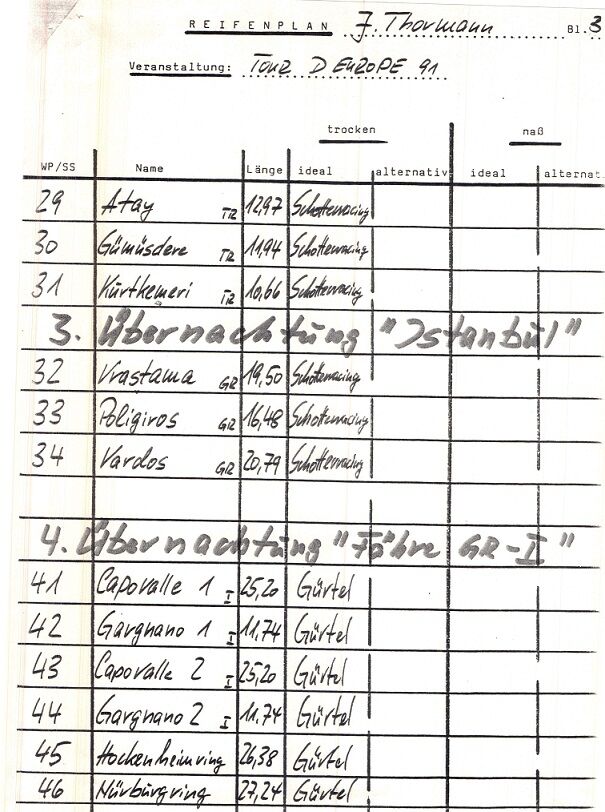 REIFENPLAN J. Thormann Bl. 3
Veranstaltung: TOUR D EUROPE 91
trocken naß
WP/SS Name Länge ideal alternativ ideal alternat.
29 Atay TR 12,97 Schotterracing
30 Gümüsdere TR 11,94 Schotterracing
31 Kürtkemeri TR 10,66 Schotterracing
3. Übernachtung "Istanbul"
32 Vrastama GR 19,50 Schotterracing
33 Poligiros GR 16,48 Schotterracing
34 Vardos GR 20,79 Schotterracing
4. Übernachtung "Fähre GR-I"
41 Capovalle 1 I 25,20 Gürtel
42 Gargnano 1 I 11,74 Gürtel
43 Capovalle 2 I 25,20 Gürtel
44 Gargnano 2 I 11,74 Gürtel
45 Hockenheimring 26,38 Gürtel
46 Nürburgring 27,24 Gürtel